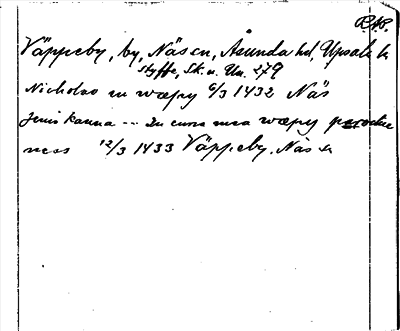 P.N.P.
Väppeby, by, Näs sn, Åsunda hd, Upsala l.
Styffe, Sk. u. Un. 279
Nicholao in wæpy 6/3 1432 Näs
Jenis kanna -- In curia mea wæpy parochie
ness 12/3 1433 Väppeby, Näs sn